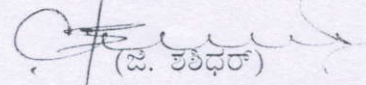 (ಜಿ. ಶಶಿಧರ್)